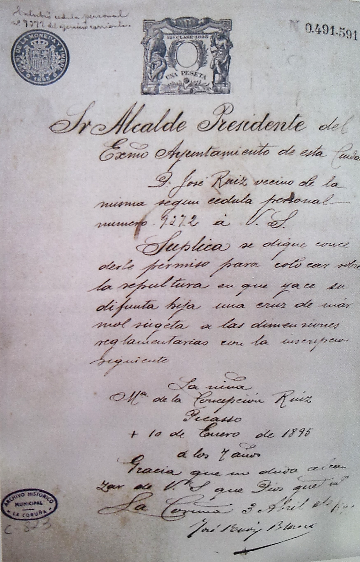 Exhibió cédula personal
nº 9272 del ejercicio corriente
12ª CLASE 1895
UNA PESETA
N 0.491.591
Sr Alcalde Presidente del
Exmo Ayuntamiento de esta Ciudad
D. José Ruiz vecino de la
misma segun cedula personal
numero 9272 á V. S.
Suplica se digne conce
derle permiso para colocar sobre
la sepultura en que yace su
difunta hija una cruz de már
mol sugeta a las dimensiones
reglamentarias con la inscripcion
siguiente
La niña
Mª de la Concepcion Ruiz
Picasso
+ 10 de Enero de 1895
a los 7 años
Gracia que no duda alcan
zar de V. S. que Dios gue ms as
La Coruña 3 Abril de
José Ruiz Blasco
ARCHIVO HISTORICO
MUNICIPAL
LA CORUÑA